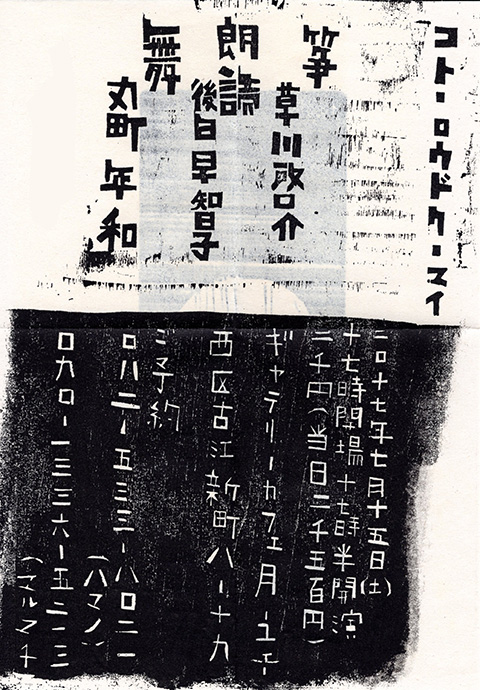 コト・ロウドク・マイ
箏
草川政口介
朗読
後臼早智子
舞
丸町年和
二〇十七年七月十五日(土)
十七時開場 十七時半開演
二千円(当日二千五百円)
ギャラリーカフェ月・ユキ
西区古江新町八-十九
ご予約
〇八二-五三三-八〇二一
(ハマノ)
〇九〇-一三三六-五二二三
(マルマチ)